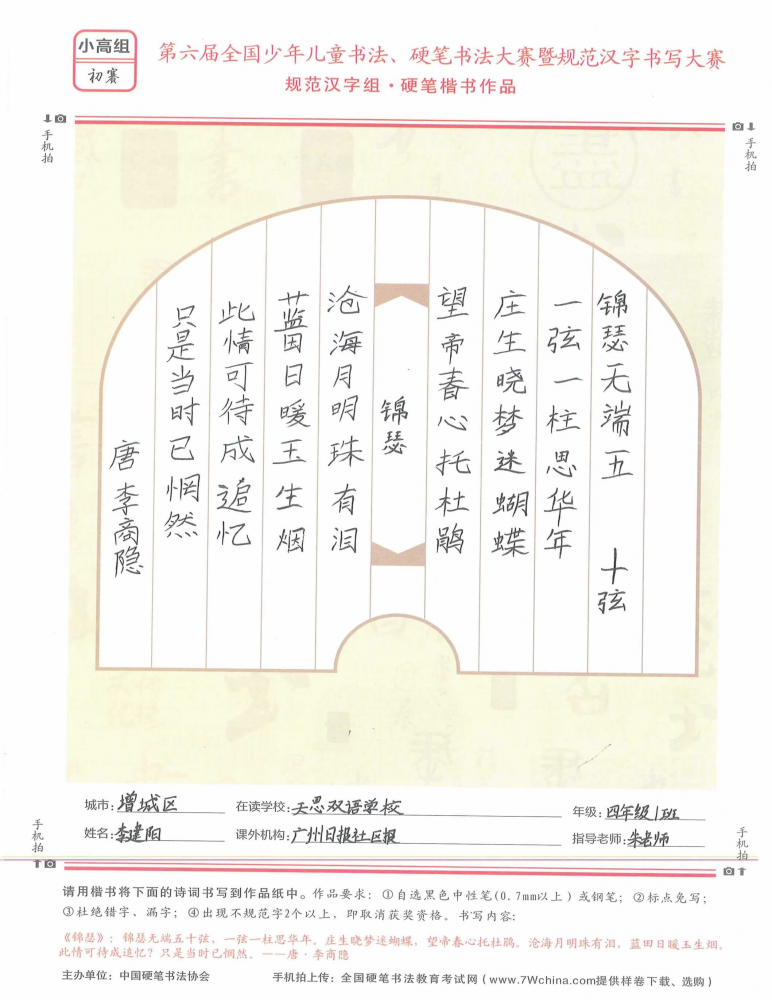 小高组
初赛
第六届全国少年儿童书法、硬笔书法大赛暨规范汉字书写大赛
规范汉字组·硬笔楷书作品
手机拍
手机拍
锦瑟无端五十弦
一弦一柱思华年
庄生晓梦迷蝴蝶
望帝春心托杜鹃
锦瑟
沧海月明珠有泪
蓝田日暖玉生烟
此情可待成追忆
只是当时已惘然
唐李商隐
城市:增城区
在读学校:天思双语学校
年级:四年级1班
姓名:李建阳
课外机构:广州日报社区报
指导老师:朱老师
手机拍
手机拍
请用楷书将下面的诗词书写到作品纸中。作品要求:①自选黑色中性笔(0.7mm以上)或钢笔;②标点免写;
③杜绝错字、漏字;④出现不规范字2个以上,即取消获奖资格。书写内容:
《锦瑟》:锦瑟无端五十弦,一弦一柱思华年。庄生晓梦迷蝴蝶,望帝春心托杜鹃。沧海月明珠有泪,蓝田日暖玉生烟,
此情可待成追忆?只是当时已惘然。——唐·李商隐
主办单位:中国硬笔书法协会
手机拍上传:全国硬笔书法教育考试网(www.7Wchina.com提供样卷下载、选购)